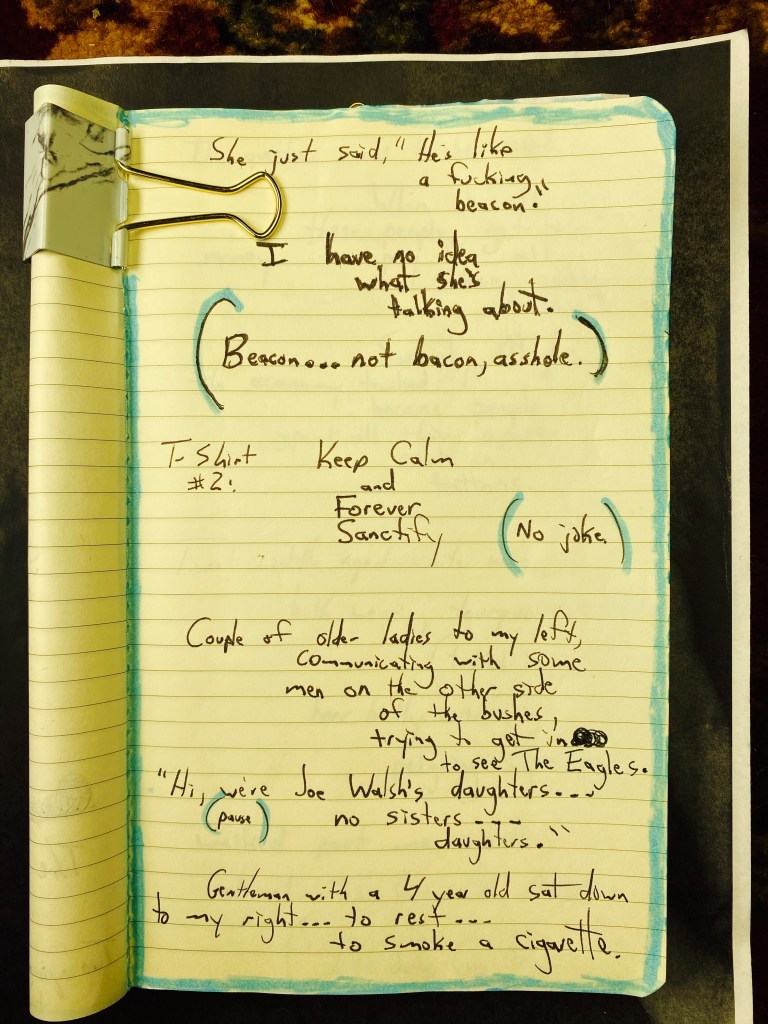 She just said, "He's like
a fucking
beacon."
I have no idea
what she's
talking about.
(Beacon... not bacon, asshole.)
T-Shirt Keep Calm
#2: and
Forever
Sanctify (No joke.)
Couple of older ladies to my left,
communicating with some
men on the other side
of the bushes,
trying to get in
to see The Eagles.
"Hi, we're Joe Walsh's daughters...
(pause) no sisters...
daughters."
Gentleman with a 4 year old sat down
to my right... to rest...
to smoke a cigarette.